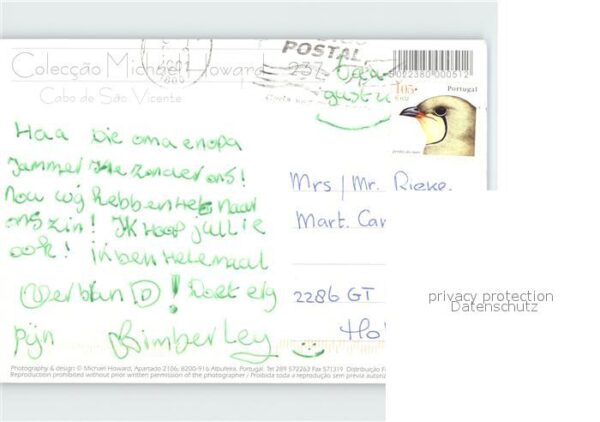 Colecção Michael Howard
Cabo de São Vicente
POSTAL
237
5602380000512
Portugal
Haa Die oma en opa
Jammer He zonder ons!
Nou wij hebben het naar
ons zin! Ik hoop jullie
ook! ik ben helemaal
Verbran D! Doet erg
pijn Kimberley
Mrs/Mr. Rieke.
Mart. Car
2286 GT
Ho
privacy protection
Datenschutz
Photography & design © Michael Howard, Apartado 2106; 8200-916 Albufeira. Portugal. Tel 289 572263 Fax 571319 Distribuição
Reproduction prohibited without prior written permission of the photographer / Proibida toda a reprodução sem prévia autoriz